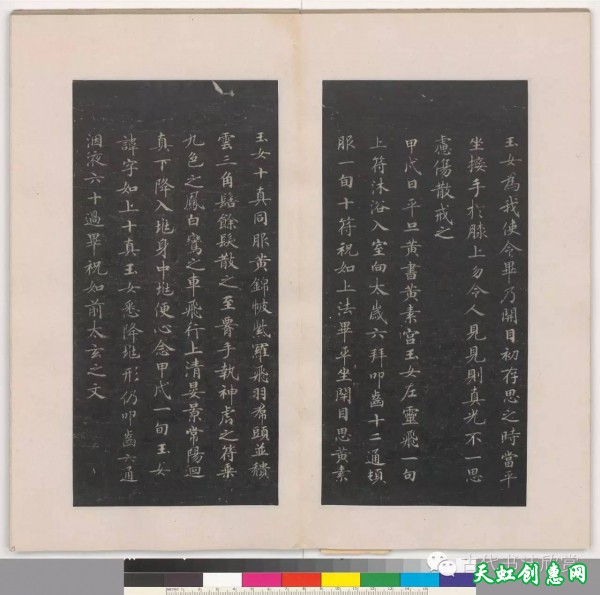 玉女為我使令畢乃開目初存思之時當平
坐接手於膝上勿令人見見則真光不一思
慮傷散戒之
甲戌日平旦黃書黃素宮玉女左靈飛一旬
上符沐浴入室向太歲六拜叩齒十二通頓
服一旬十符祝如上法畢平坐閉目思黃素
玉女十真同服黃錦帔紫羅飛羽裙頭並頹
雲三角髻餘髮散之至署手執神虎之符乘
九色之鳳白鸞之車飛行上清晏景常陽迴
真下降入地身中地便心念甲戌一旬玉女
諱字如上十真玉女悉降地形仍叩齒六通
咽液六十過畢祝如前太玄之文
古代书法欣赏
天虹创惠网